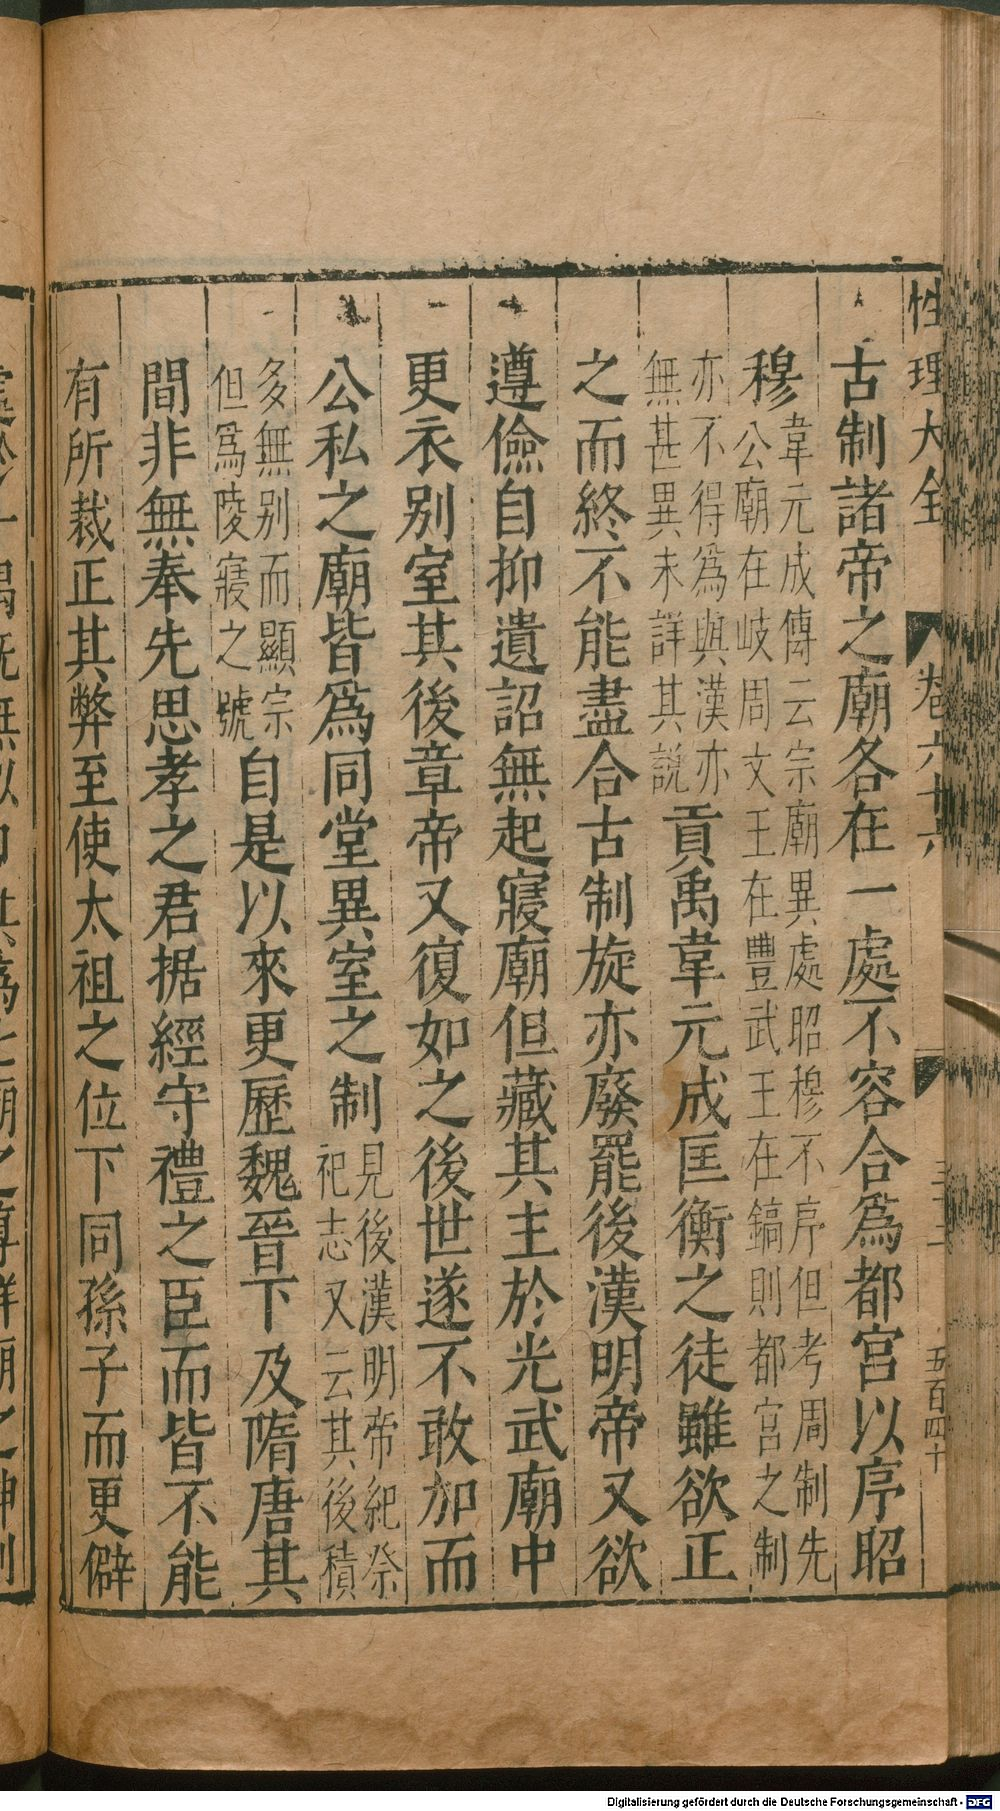 性理大全 卷六十六 五百四十
古制諸帝之廟各在一處不容合爲都宮以序昭
穆韋元成傳云宗廟異處昭穆不序但考周制先
公廟在岐周文王在豐武王在鎬則都宮之制
亦不得爲與漢亦
無甚異未詳其説貢禹韋元成匡衡之徒雖欲正
之而終不能盡合古制旋亦廢罷後漢明帝又欲
遵儉自抑遺詔無起寢廟但藏其主於光武廟中
更衣别室其後章帝又復如之後世遂不敢加而
公私之廟皆爲同堂異室之制見後漢明帝紀祭
祀志又云其後積
多無别而顯宗
但爲陵寢之號自是以來更歷魏晉下及隋唐其
間非無奉先思孝之君据經守禮之臣而皆不能
有所裁正其弊至使太祖之位下同孫子而更僻
Digitalisierung gefördert durch die Deutsche Forschungsgemeinschaft - DFG